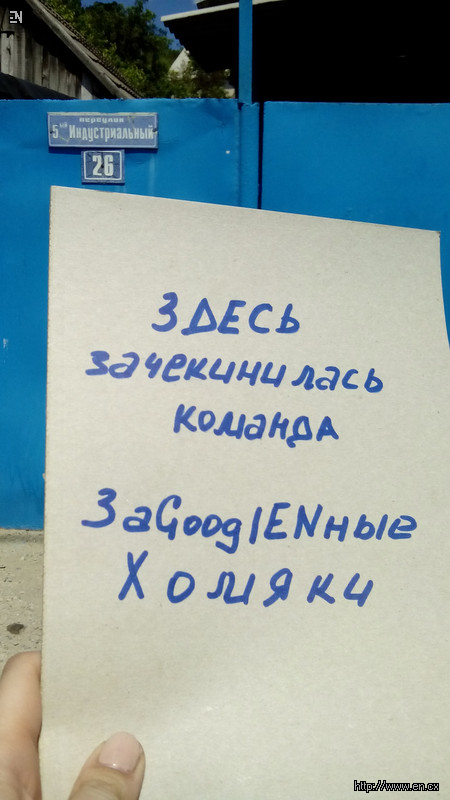 EN
переулок
5ый Индустриальный
26
ЗДЕСЬ
зачекинилась
команда
ЗаGooglENные
Хомяки
http://www.en.cx